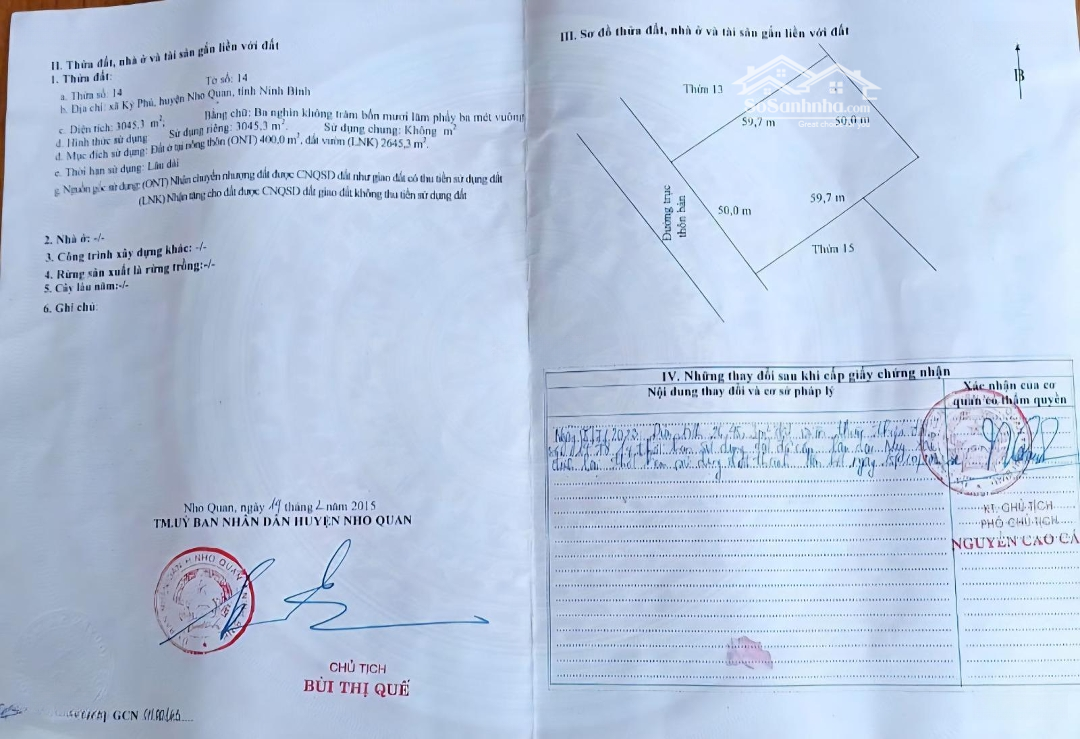 II. Thửa đất, nhà ở và tài sản gắn liền với đất
1. Thửa đất:
a. Thửa số: 14 Tờ số: 14
b. Địa chỉ: xã Kỳ Phú, huyện Nho Quan, tỉnh Ninh Bình
c. Diện tích: 3045,3 m², Bằng chữ: Ba nghìn không trăm bốn mươi lăm phẩy ba mét vuông
d. Hình thức sử dụng Sử dụng riêng: 3045,3 m². Sử dụng chung: Không m²
d. Mục đích sử dụng: Đất ở tại nông thôn (ONT) 400,0 m², đất vườn (LNK) 2645,3 m².
e. Thời hạn sử dụng: Lâu dài
g. Nguồn gốc sử dụng: (ONT) Nhận chuyển nhượng đất được CNQSD đất như giao đất có thu tiền sử dụng đất
(LNK) Nhận tặng cho đất được CNQSD đất giao đất không thu tiền sử dụng đất
2. Nhà ở: -/-
3. Công trình xây dựng khác: -/-
4. Rừng sản xuất là rừng trồng:-/-
5. Cây lâu năm:-/-
6. Ghi chú:
Nho Quan, ngày 19 tháng 2 năm 2015
TM.UỶ BAN NHÂN DÂN HUYỆN NHO QUAN
CHỦ TỊCH
BÙI THỊ QUẾ
GCN
III. Sơ đồ thửa đất, nhà ở và tài sản gắn liền với đất
B
Thửa 13
SoSanhnha.com
59,7 m
50,0 m
59,7 m
50,0 m
Đường trục
thôn bản
Thửa 15
IV. Những thay đổi sau khi cấp giấy chứng nhận
Nội dung thay đổi và cơ sở pháp lý
Xác nhận của cơ
quan có thẩm quyền
KT. CHỦ TỊCH
PHÓ CHỦ TỊCH
NGUYỄN CAO